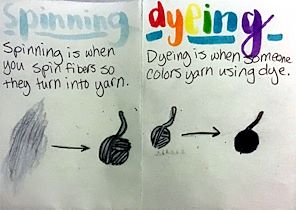 Spinning
Spinning is when
you spin fibers so
they turn into yarn.
dyeing
Dyeing is when someone
colors yarn using dye.